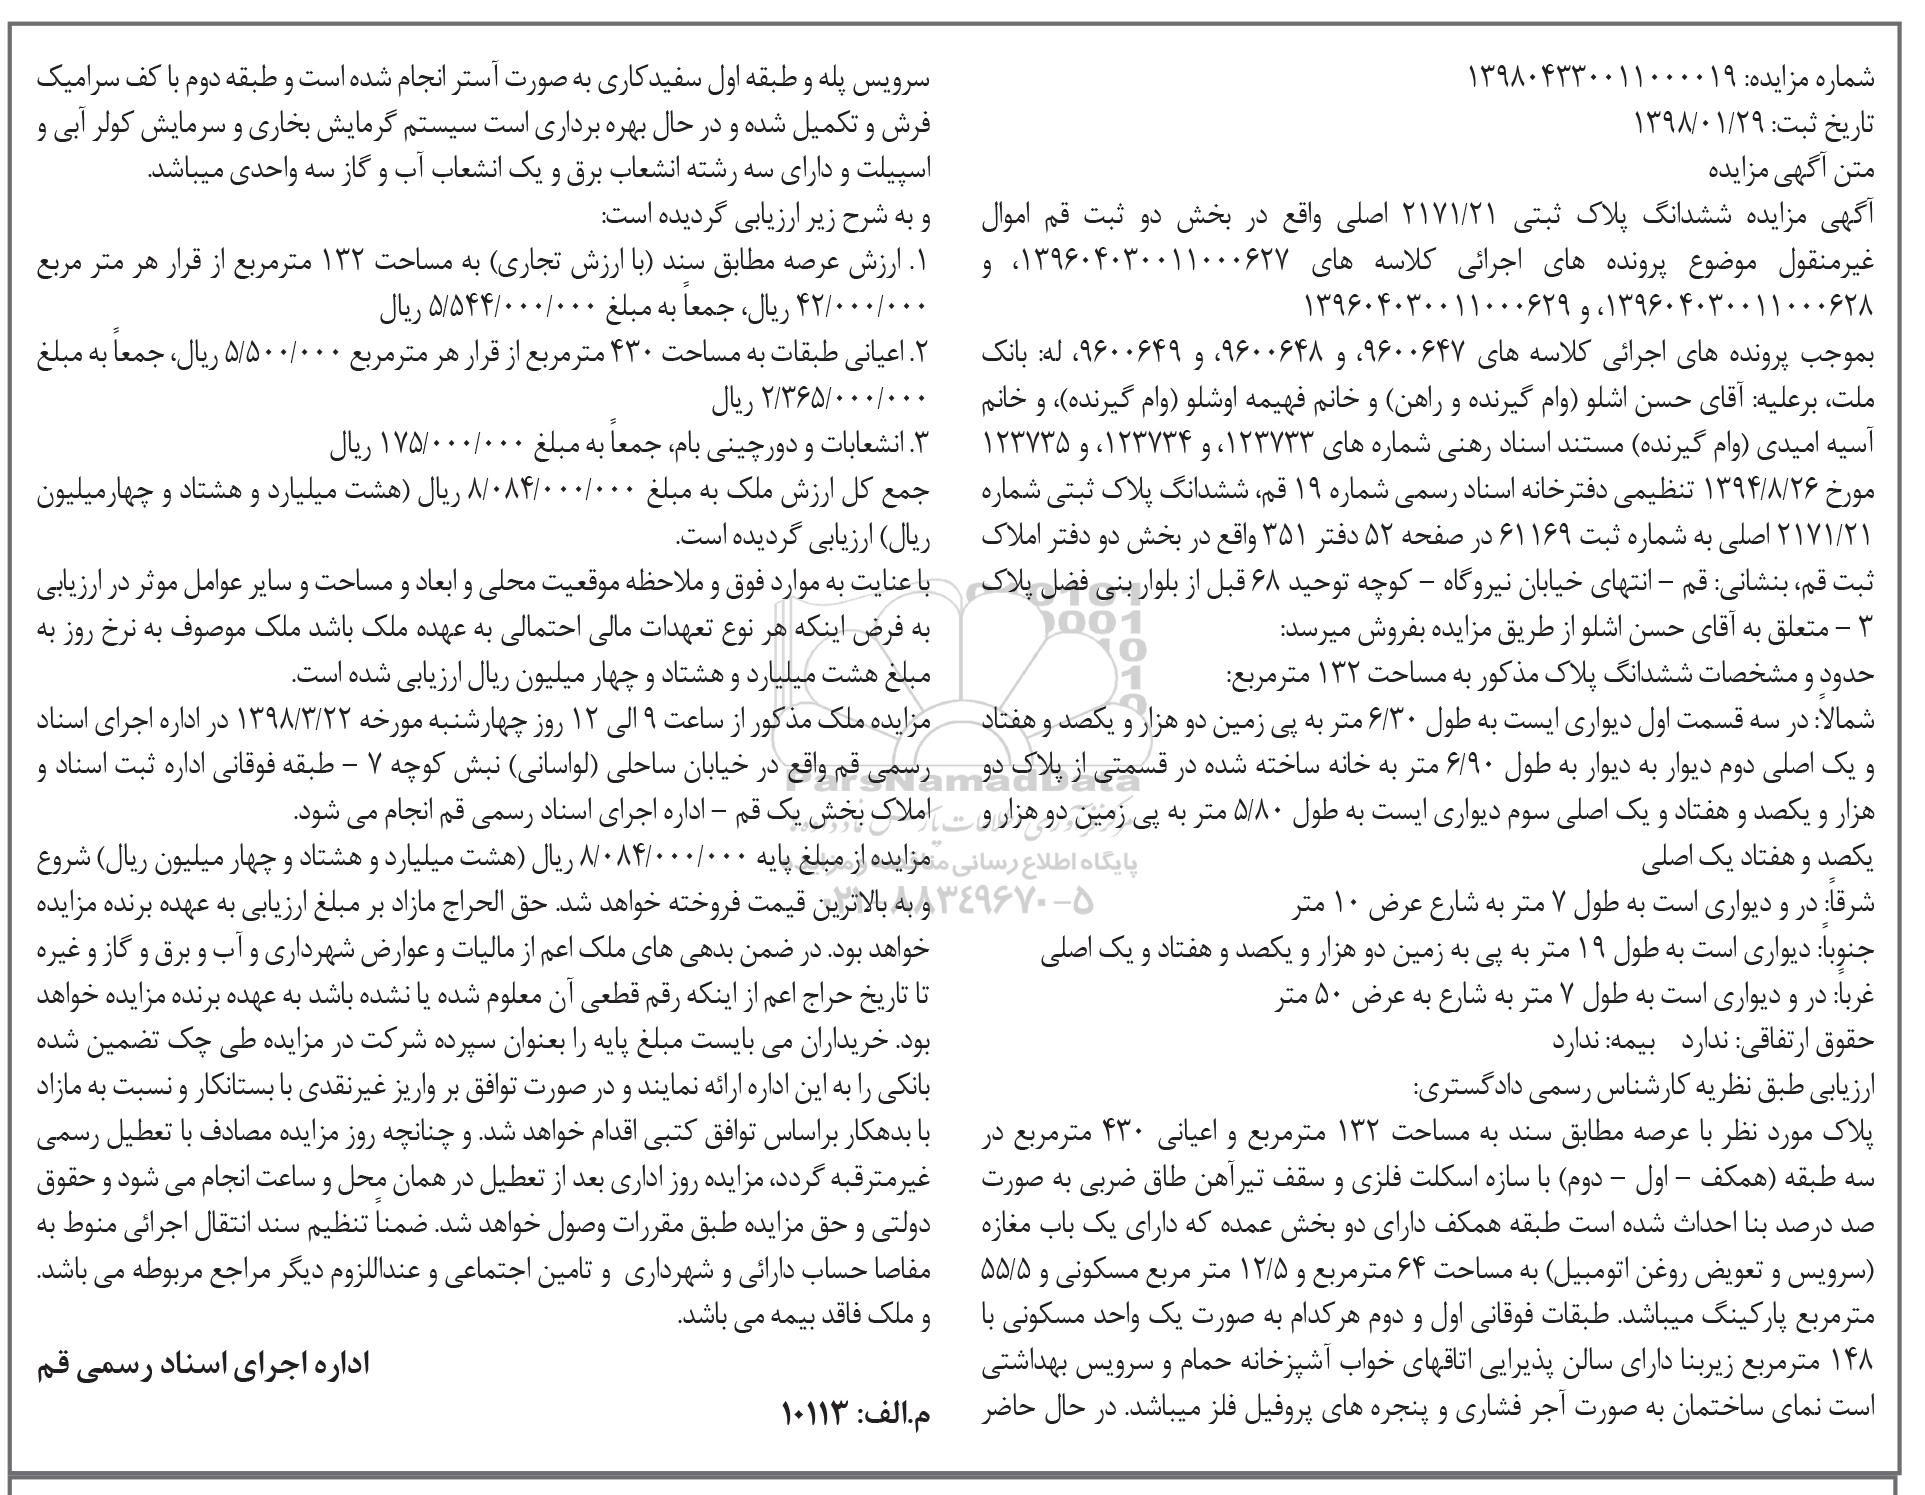 شماره مزایده: ۱۳۹۸۰۴۳۳۰۰۱۱۰۰۰۰۱۹
تاریخ ثبت: ۱۳۹۸/۰۱/۲۹
متن آگهی مزایده
آگهی مزایده ششدانگ پلاک ثبتی ۲۱۷۱/۲۱ اصلی واقع در بخش دو ثبت قم اموال
غیرمنقول موضوع پرونده های اجرائی کلاسه های ۱۳۹۶۰۴۰۳۰۰۱۱۰۰۰۶۲۷، و
۱۳۹۶۰۴۰۳۰۰۱۱۰۰۰۶۲۸، و ۱۳۹۶۰۴۰۳۰۰۱۱۰۰۰۶۲۹
بموجب پرونده های اجرائی کلاسه های ۹۶۰۰۶۴۷، و ۹۶۰۰۶۴۸، و ۹۶۰۰۶۴۹، له: بانک
ملت، برعلیه: آقای حسن اشلو (وام گیرنده و راهن) و خانم فهیمه اوشلو (وام گیرنده)، و خانم
آسیه امیدی (وام گیرنده) مستند اسناد رهنی شماره های ۱۲۳۷۳۳، و ۱۲۳۷۳۴، و ۱۲۳۷۳۵
مورخ ۱۳۹۴/۸/۲۶ تنظیمی دفترخانه اسناد رسمی شماره ۱۹ قم، ششدانگ پلاک ثبتی شماره
۲۱۷۱/۲۱ اصلی به شماره ثبت ۶۱۱۶۹ در صفحه ۵۲ دفتر ۳۵۱ واقع در بخش دو دفتر املاک
ثبت قم، بنشانی: قم – انتهای خیابان نیروگاه – کوچه توحید ۶۸ قبل از بلوار بنی فضل پلاک
۳ – متعلق به آقای حسن اشلو از طریق مزایده بفروش میرسد:
حدود و مشخصات ششدانگ پلاک مذکور به مساحت ۱۳۲ مترمربع:
شمالاً: در سه قسمت اول دیواری ایست به طول ۶/۳۰ متر به پی زمین دو هزار و یکصد و هفتاد
و یک اصلی دوم دیوار به دیوار به طول ۶/۹۰ متر به خانه ساخته شده در قسمتی از پلاک دو
هزار و یکصد و هفتاد و یک اصلی سوم دیواری ایست به طول ۵/۸۰ متر به پی زمین دو هزار و
یکصد و هفتاد یک اصلی
شرقاً: در و دیواری است به طول ۷ متر به شارع عرض ۱۰ متر
جنوباً: دیواری است به طول ۱۹ متر به پی به زمین دو هزار و یکصد و هفتاد و یک اصلی
غرباً: در و دیواری است به طول ۷ متر به شارع به عرض ۵۰ متر
حقوق ارتفاقی: ندارد بیمه: ندارد
ارزیابی طبق نظریه کارشناس رسمی دادگستری:
پلاک مورد نظر با عرصه مطابق سند به مساحت ۱۳۲ مترمربع و اعیانی ۴۳۰ مترمربع در
سه طبقه (همکف – اول – دوم) با سازه اسکلت فلزی و سقف تیرآهن طاق ضربی به صورت
صد درصد بنا احداث شده است طبقه همکف دارای دو بخش عمده که دارای یک باب مغازه
(سرویس و تعویض روغن اتومبیل) به مساحت ۶۴ مترمربع و ۱۲/۵ متر مربع مسکونی و ۵۵/۵
مترمربع پارکینگ میباشد. طبقات فوقانی اول و دوم هرکدام به صورت یک واحد مسکونی با
۱۴۸ مترمربع زیربنا دارای سالن پذیرایی اتاقهای خواب آشپزخانه حمام و سرویس بهداشتی
است نمای ساختمان به صورت آجر فشاری و پنجره های پروفیل فلز میباشد. در حال حاضر
سرویس پله و طبقه اول سفیدکاری به صورت آستر انجام شده است و طبقه دوم با کف سرامیک
فرش و تکمیل شده و در حال بهره برداری است سیستم گرمایش بخاری و سرمایش کولر آبی و
اسپیلت و دارای سه رشته انشعاب برق و یک انشعاب آب و گاز سه واحدی میباشد.
و به شرح زیر ارزیابی گردیده است:
۱. ارزش عرصه مطابق سند (با ارزش تجاری) به مساحت ۱۳۲ مترمربع از قرار هر متر مربع
۴۲/۰۰۰/۰۰۰ ریال، جمعاً به مبلغ ۵/۵۴۴/۰۰۰/۰۰۰ ریال
۲. اعیانی طبقات به مساحت ۴۳۰ مترمربع از قرار هر مترمربع ۵/۵۰۰/۰۰۰ ریال، جمعاً به مبلغ
۲/۳۶۵/۰۰۰/۰۰۰ ریال
۳. انشعابات و دورچینی بام، جمعاً به مبلغ ۱۷۵/۰۰۰/۰۰۰ ریال
جمع کل ارزش ملک به مبلغ ۸/۰۸۴/۰۰۰/۰۰۰ ریال (هشت میلیارد و هشتاد و چهارمیلیون
ریال) ارزیابی گردیده است.
با عنایت به موارد فوق و ملاحظه موقعیت محلی و ابعاد و مساحت و سایر عوامل موثر در ارزیابی
به فرض اینکه هر نوع تعهدات مالی احتمالی به عهده ملک باشد ملک موصوف به نرخ روز به
مبلغ هشت میلیارد و هشتاد و چهار میلیون ریال ارزیابی شده است.
مزایده ملک مذکور از ساعت ۹ الی ۱۲ روز چهارشنبه مورخه ۱۳۹۸/۳/۲۲ در اداره اجرای اسناد
رسمی قم واقع در خیابان ساحلی (لواسانی) نبش کوچه ۷ – طبقه فوقانی اداره ثبت اسناد و
املاک بخش یک قم – اداره اجرای اسناد رسمی قم انجام می شود.
مزایده از مبلغ پایه ۸/۰۸۴/۰۰۰/۰۰۰ ریال (هشت میلیارد و هشتاد و چهار میلیون ریال) شروع
و به بالاترین قیمت فروخته خواهد شد. حق الحراج مازاد بر مبلغ ارزیابی به عهده برنده مزایده
خواهد بود. در ضمن بدهی های ملک اعم از مالیات و عوارض شهرداری و آب و برق و گاز و غیره
تا تاریخ حراج اعم از اینکه رقم قطعی آن معلوم شده یا نشده باشد به عهده برنده مزایده خواهد
بود. خریداران می بایست مبلغ پایه را بعنوان سپرده شرکت در مزایده طی چک تضمین شده
بانکی را به این اداره ارائه نمایند و در صورت توافق بر واریز غیرنقدی با بستانکار و نسبت به مازاد
با بدهکار براساس توافق کتبی اقدام خواهد شد. و چنانچه روز مزایده مصادف با تعطیل رسمی
غیرمترقبه گردد، مزایده روز اداری بعد از تعطیل در همان محل و ساعت انجام می شود و حقوق
دولتی و حق مزایده طبق مقررات وصول خواهد شد. ضمناً تنظیم سند انتقال اجرائی منوط به
مفاصا حساب دارائی و شهرداری و تامین اجتماعی و عنداللزوم دیگر مراجع مربوطه می باشد.
و ملک فاقد بیمه می باشد.
اداره اجرای اسناد رسمی قم
م.الف: ۱۰۱۱۳
ParsNamadData
پایگاه اطلاع رسانی